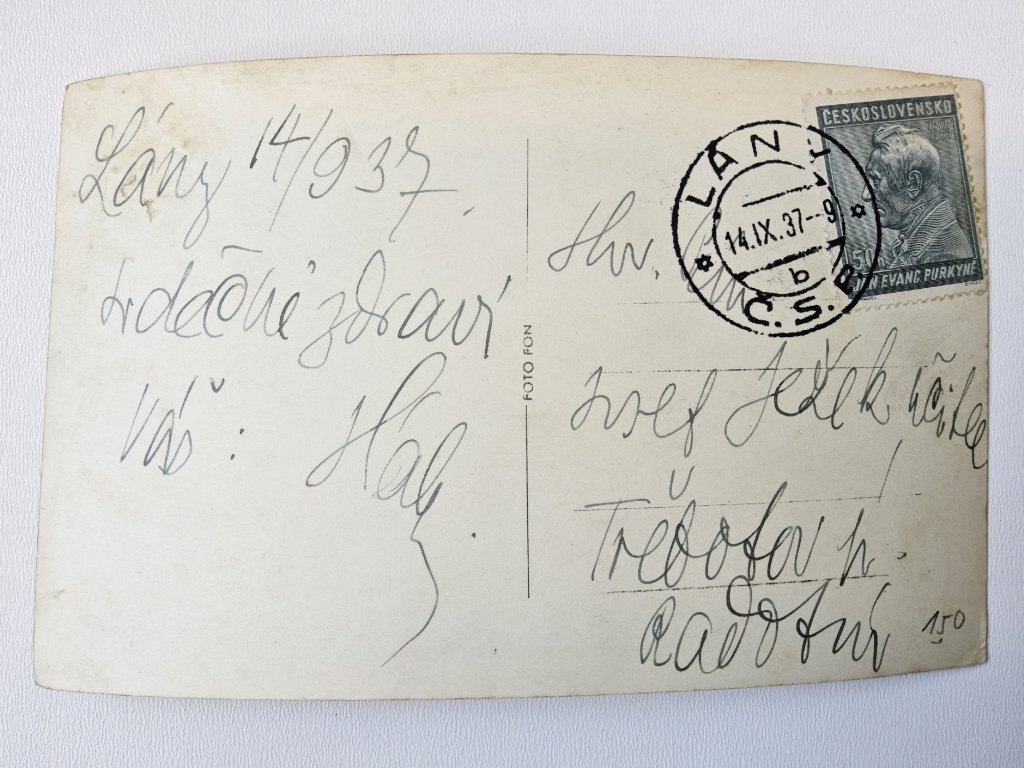 Lány 14/9 37.
srdečně zdraví
Váš: 
FOTO FON
ČESKOSLOVENSKO
50
JAN EVANG. PURKYNĚ
LÁNY
14.IX.37--9
b
Č.S.R.
Josef Ježek učitel
Třebotov p.
Radotín
150